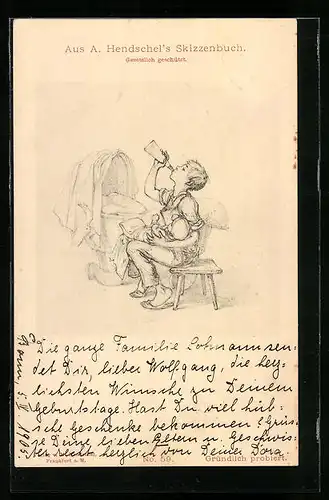 Aus A. Hendschel's Skizzenbuch.
Gesetzlich geschützt.
Die ganze Familie Lohmann sen-
det Dir, lieber Wolfgang, die herz-
lichsten Wünsche zu Deinem
Geburtstage. Hast Du viel hüb-
sche Geschenke bekommen? Grüs-
se Deine lieben Eltern u. Geschwis-
ter recht herzlich von Deiner Dora.
Frankfurt a. M. No. 59. Gründlich probiert.
1905